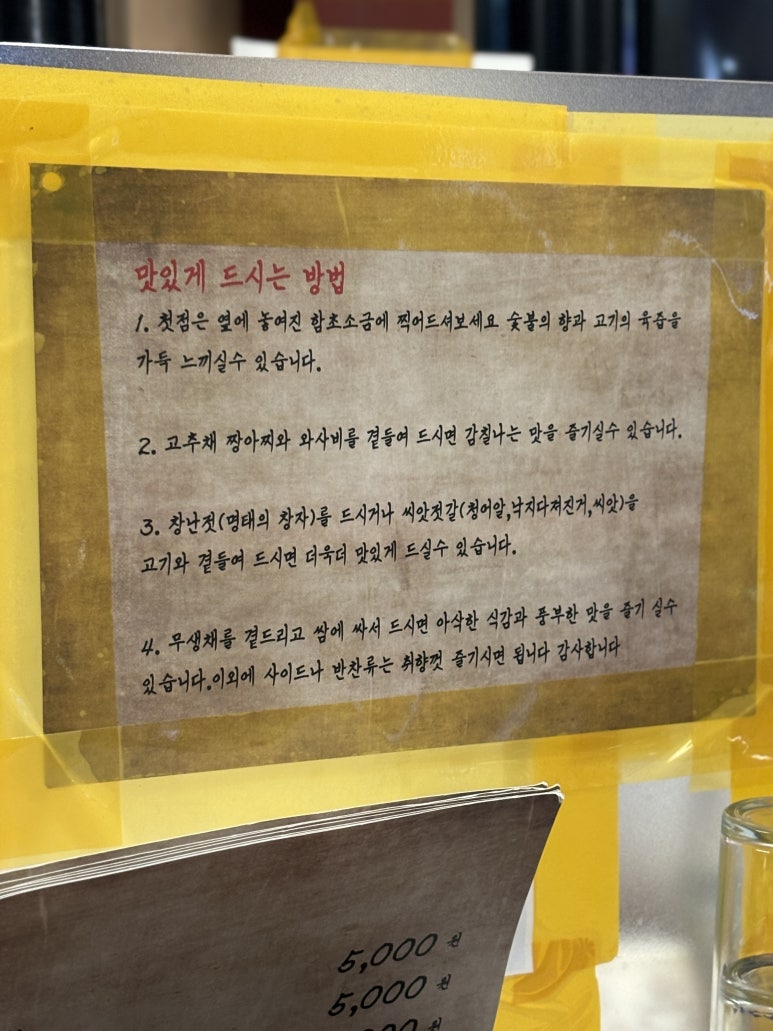 맛있게 드시는 방법
1. 첫점은 옆에 놓여진 함초소금에 찍어드셔보세요 숯불의 향과 고기의 육즙을
가득 느끼실수 있습니다.
2. 고추채 짱아찌와 와사비를 곁들여 드시면 감칠나는 맛을 즐기실수 있습니다.
3. 창난젓(명태의 창자)를 드시거나 씨앗젓갈(청어알,낙지다져진거,씨앗)을
고기와 곁들여 드시면 더욱더 맛있게 드실수 있습니다.
4. 무생채를 곁드리고 쌈에 싸서 드시면 아삭한 식감과 풍부한 맛을 즐기 실수
있습니다.이외에 사이드나 반찬류는 취향껏 즐기시면 됩니다 감사합니다
5,000 원
5,000 원
원